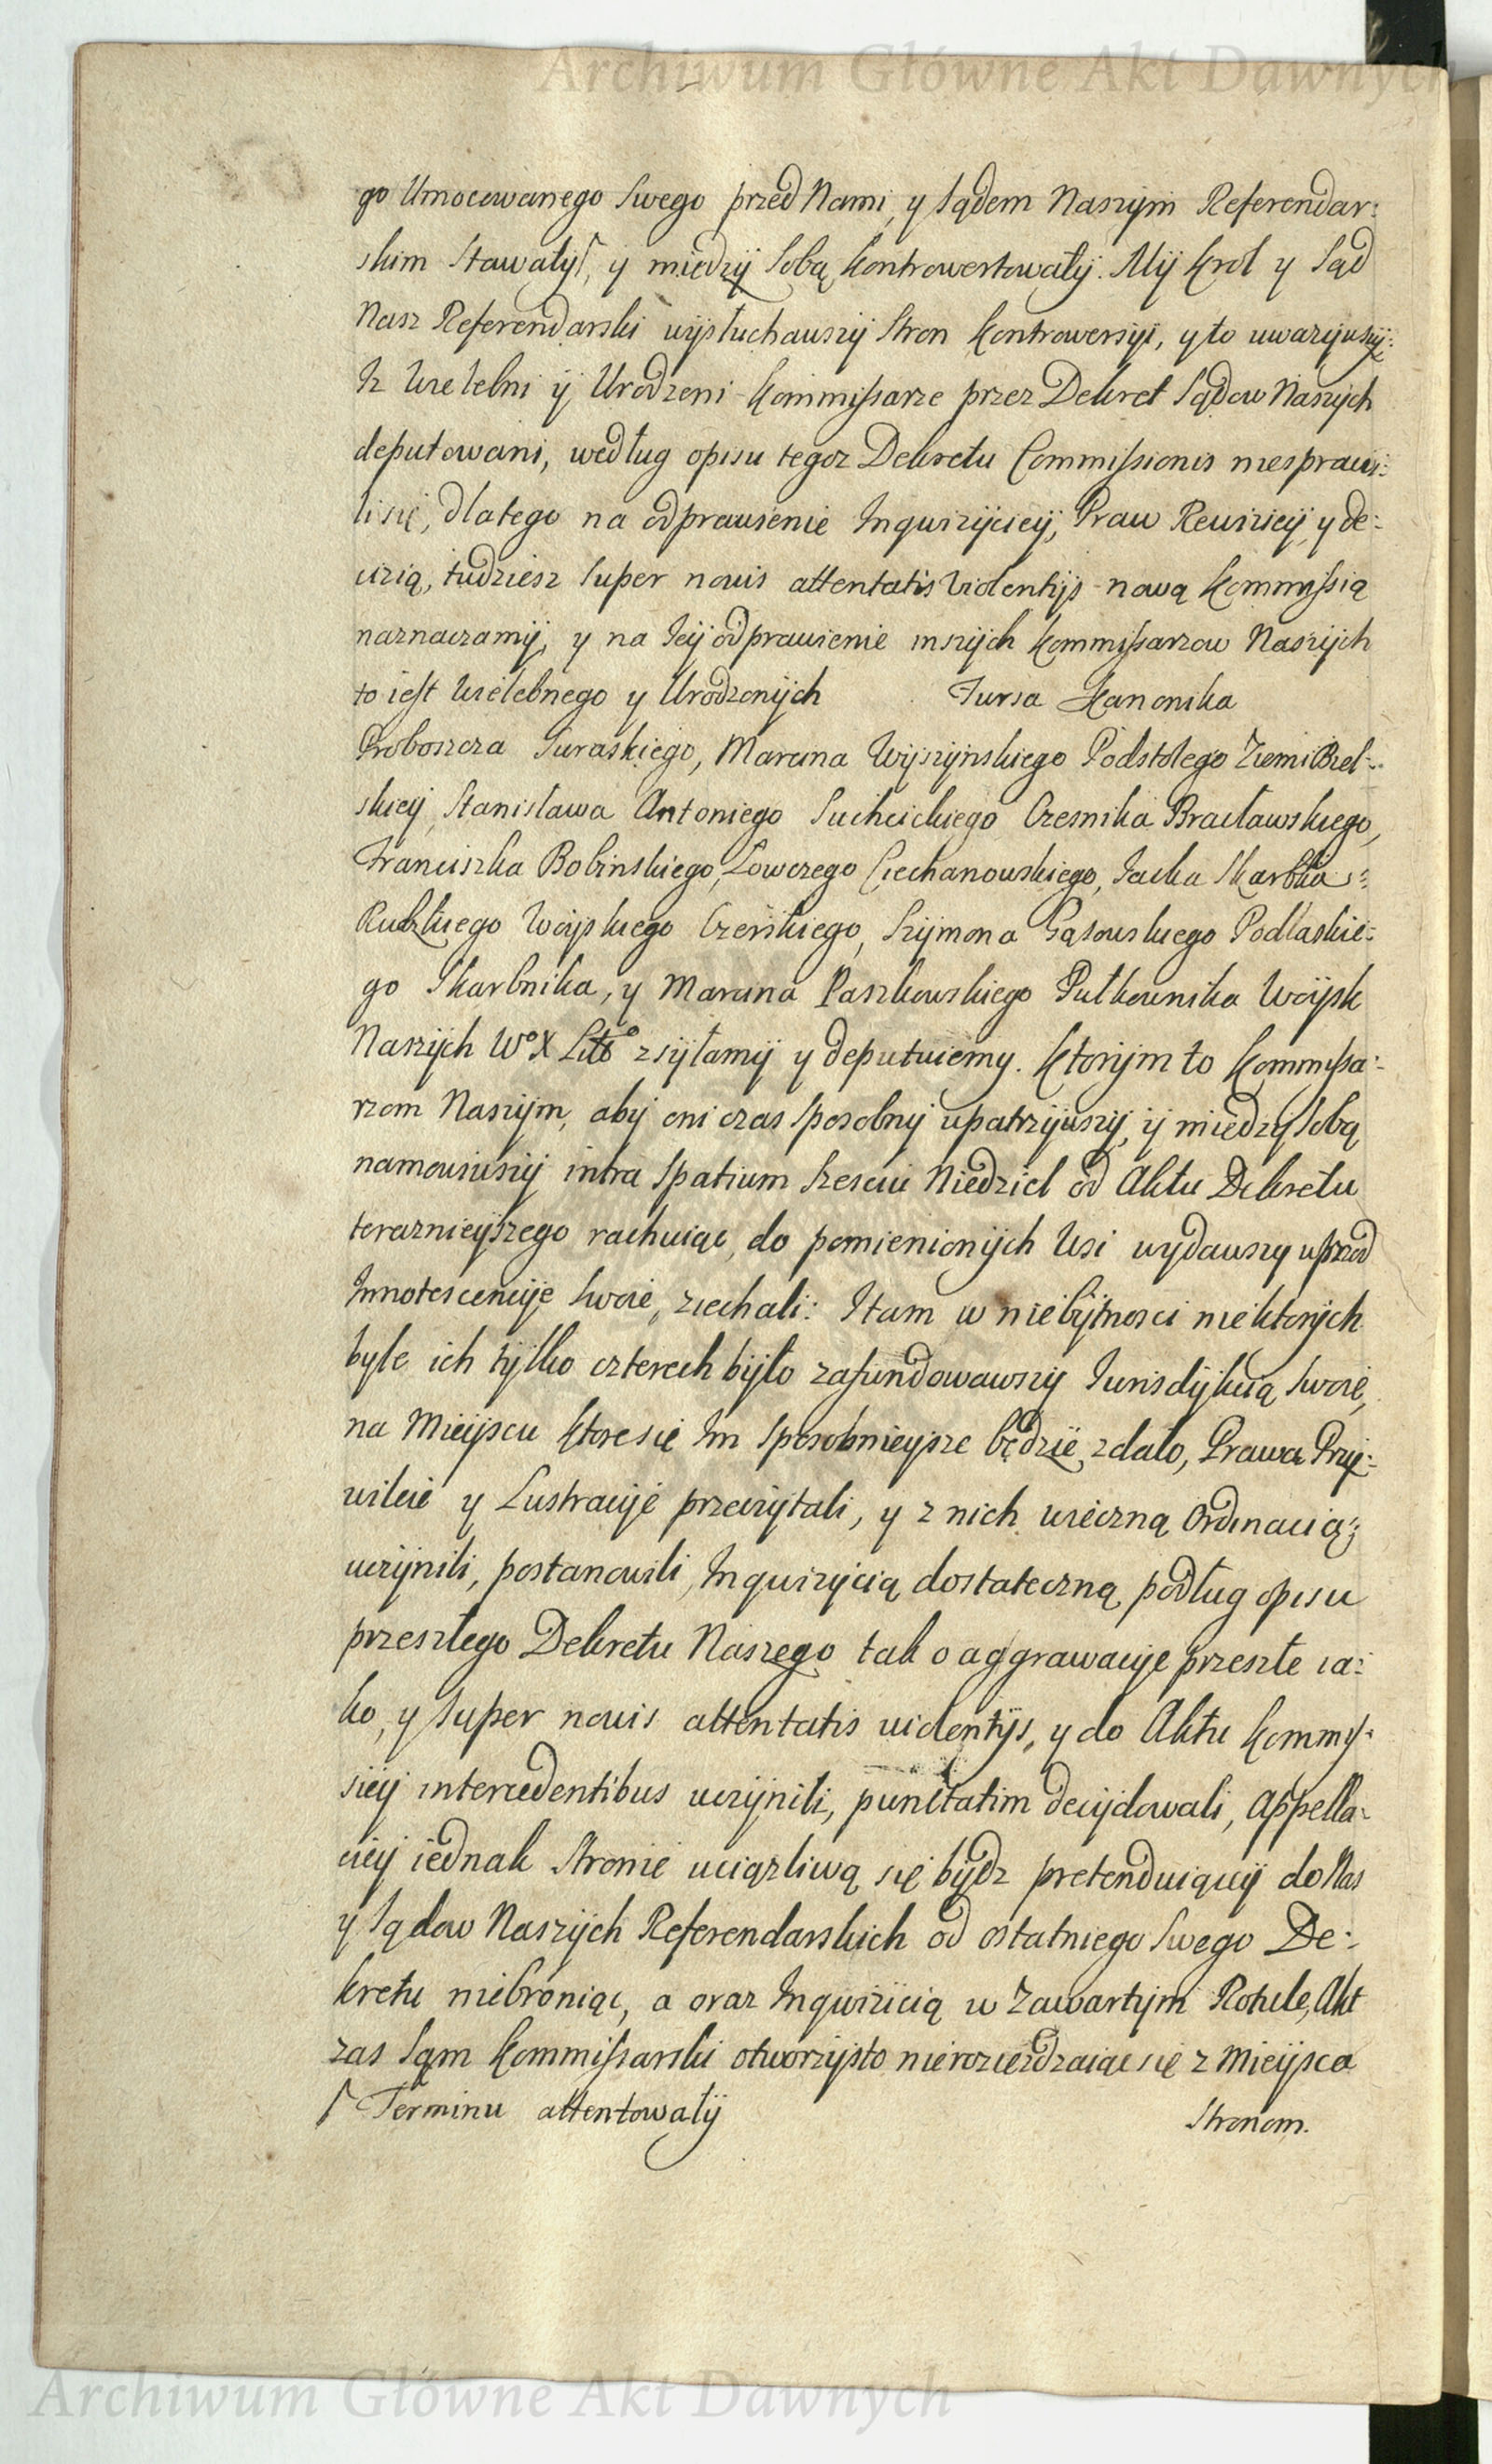 Archiwum Główne Akt Dawnych
go Umocowanego Swego przed Nami, y Sądem Naszym Referendar:
skim Stawały, y miedzy Sobą kontrowertowały. My Krol y Sąd
Nasz Referendarski wysłuchawszy Stron kontrowersyi, y to uwazywszy:
Iz Wielebni y Urodzeni Kommissarze przez Dekret Sądow Naszych
deputowani, według opisu tegoz Dekretu Commissionis niesprawi:
li się, dlatego na odprawienie Inquizyciey, Praw Rewiziey, y de:
cizią, tudziesz Super novis attentatis Violentijs nową Kommissią
naznaczamy, y na Iey odprawienie inszych Kommissarzow Naszych
to iest Wielebnego y Urodzonych Tursa Kanonika
Proboszcza Suraskiego, Marcina Wyszynskiego Podstolego Ziemi Biel:
skiey, Stanisława Antoniego Suchcickiego Czesnika Bracławskiego,
Franciszka Bobinskiego, Łowczego Ciechanowskiego, Jacka Skarbka:
Rudzkiego Woyskiego Czerskiego, Szymona Gąsowskiego Podlaskie:
go Skarbnika, y Marcina Paszkowskiego Pułkownika Woysk
Naszych Wo X Litto zsyłamy y deputuiemy. Ktorym to Kommissa:
rzom Naszym, aby oni czas sposobny upatrzywszy, y miedzy Sobą
namowiwszy intra Spatium Szesciu Niedziel od Aktu Dekretu
teraznieyszego rachuiąc, do pomienionych Wsi wydawszy wprzod
Innotescencye Swoie, ziechali: I tam w niebytnosci niektorych
byle ich tylko czterech było zafundowawszy Jurisdykcią Swoię,
na Mieyscu ktore się Im Sposobnieysze będzie zdało, Prawa Przy:
wileie y Lustracye przeczytali, y z nich wieczną Ordinacią:
uczynili, postanowili, Inquizycią dostateczną podług opisu
przeszłego Dekretu Naszego tak o aggrawacye przeszłe ia:
ko, y Super novis attentatis violentijs, y do Aktu Kommis:
siey intercedentibus uczynili, punctatim decydowali, Appella:
ciey iednak Stronie uciązliwą się bydz pretenduiącey do Nas
y Sądow Naszych Referendarskich od ostatniego Swego De:
kretu niebroniąc, a oraz Inquizicią w Zawartym Rotule, Akt
zas Sąm Kommissarski otworzysto nierozieżdzaiąc się z Mieysca
Terminu attentowały
Stronom.
Archiwum Główne Akt Dawnych